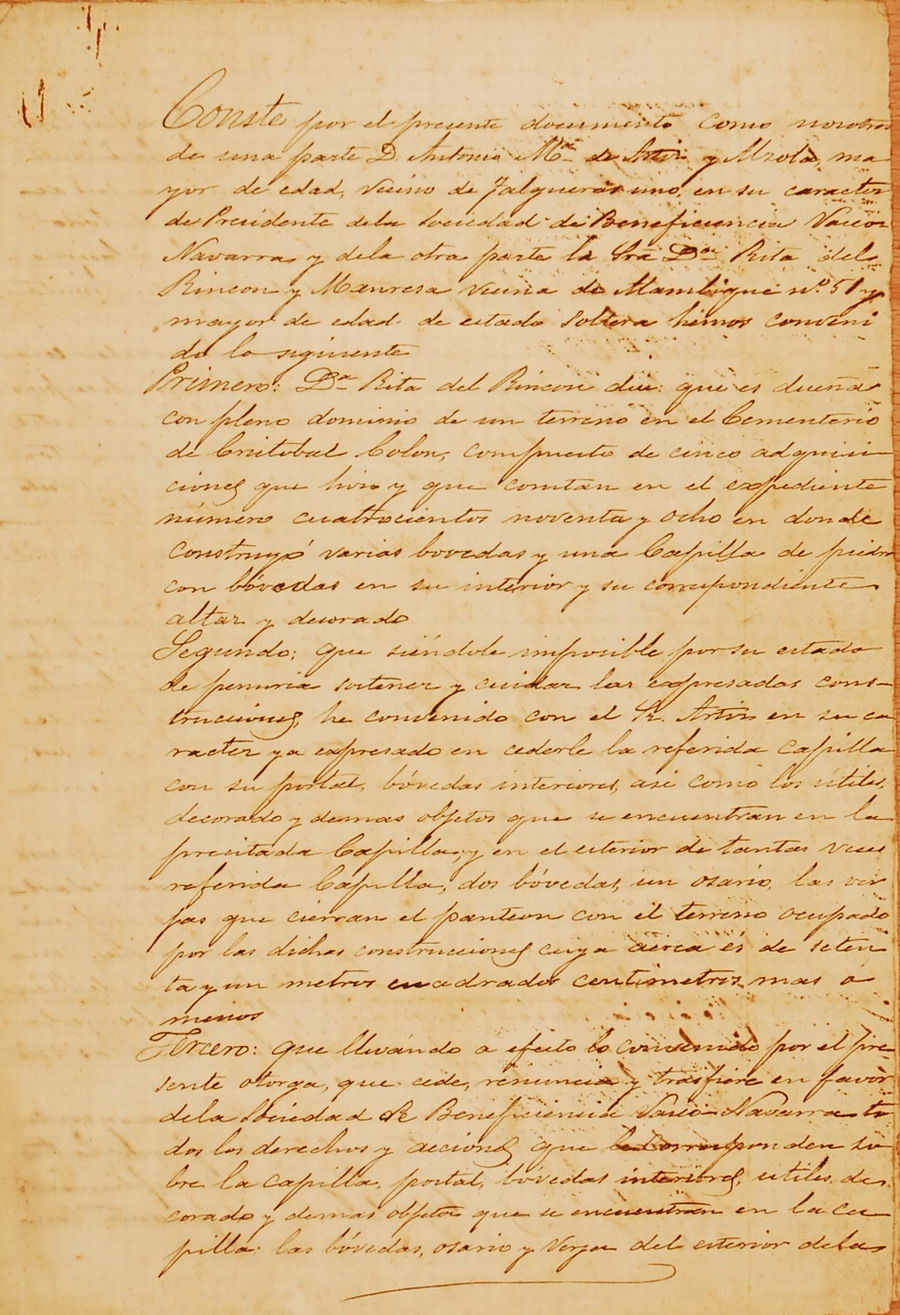 Conste por el presente documento como nosotros
de una parte D. Antonio Mª de Artiz y Alzola, ma
yor de edad, vecino de Falgueras uno, en su caracter
de Presidente dela Sociedad de Beneficiencia Vasco
Navarra, y dela otra parte la Sra Dª Rita del
Rincon y Manresa vecina de Mamrique nº 51 y
mayor de edad de estado soltera hemos conveni
do lo siguiente
Primero: Dª Rita del Rincon dice: que es dueña
con pleno dominio de un terreno en el Cementerio
de Cristobal Colon, compuesto de cinco adquisi
ciones que hizo y que constan en el expediente
número cuatrocientos noventa y ocho en donde
construyó varias bovedas y una Capilla de piedra
con bóvedas en su interior y su correspondiente
altar y decorado
Segundo: que siéndole imposible por su estado
de penuria sostener y cuidar las expresadas cons-
trucciones, he convenido con el Sr. Artiz en su ca
racter ya expresado en cederle la referida capilla
con su portal, bóvedas interiores, asi como los útiles,
decorado y demas objetos que se encuentran en la
precitada Capilla, y en el exterior de tantas veces
referida Capilla, dos bóvedas, un osario, las ver
jas que cierran el panteon con el terreno ocupado
por las dichas construcciones cuya aerea es de seten
ta y un metros cuadrados centimetros mas ó
menos
Tercero: que llevándo á efecto lo convenido por el pre
sente otorga, que cede, renuncia y trasfiere en favor
dela Sociedad de Beneficiencia Vasco Navarra to
dos los derechos y acciones que le corresponden so
bre la capilla, portal, bóvedas interiores, utiles, de
corado y demas objetos que se encuentran en la ca
pilla: las bóvedas, osario y verja del exterior dela